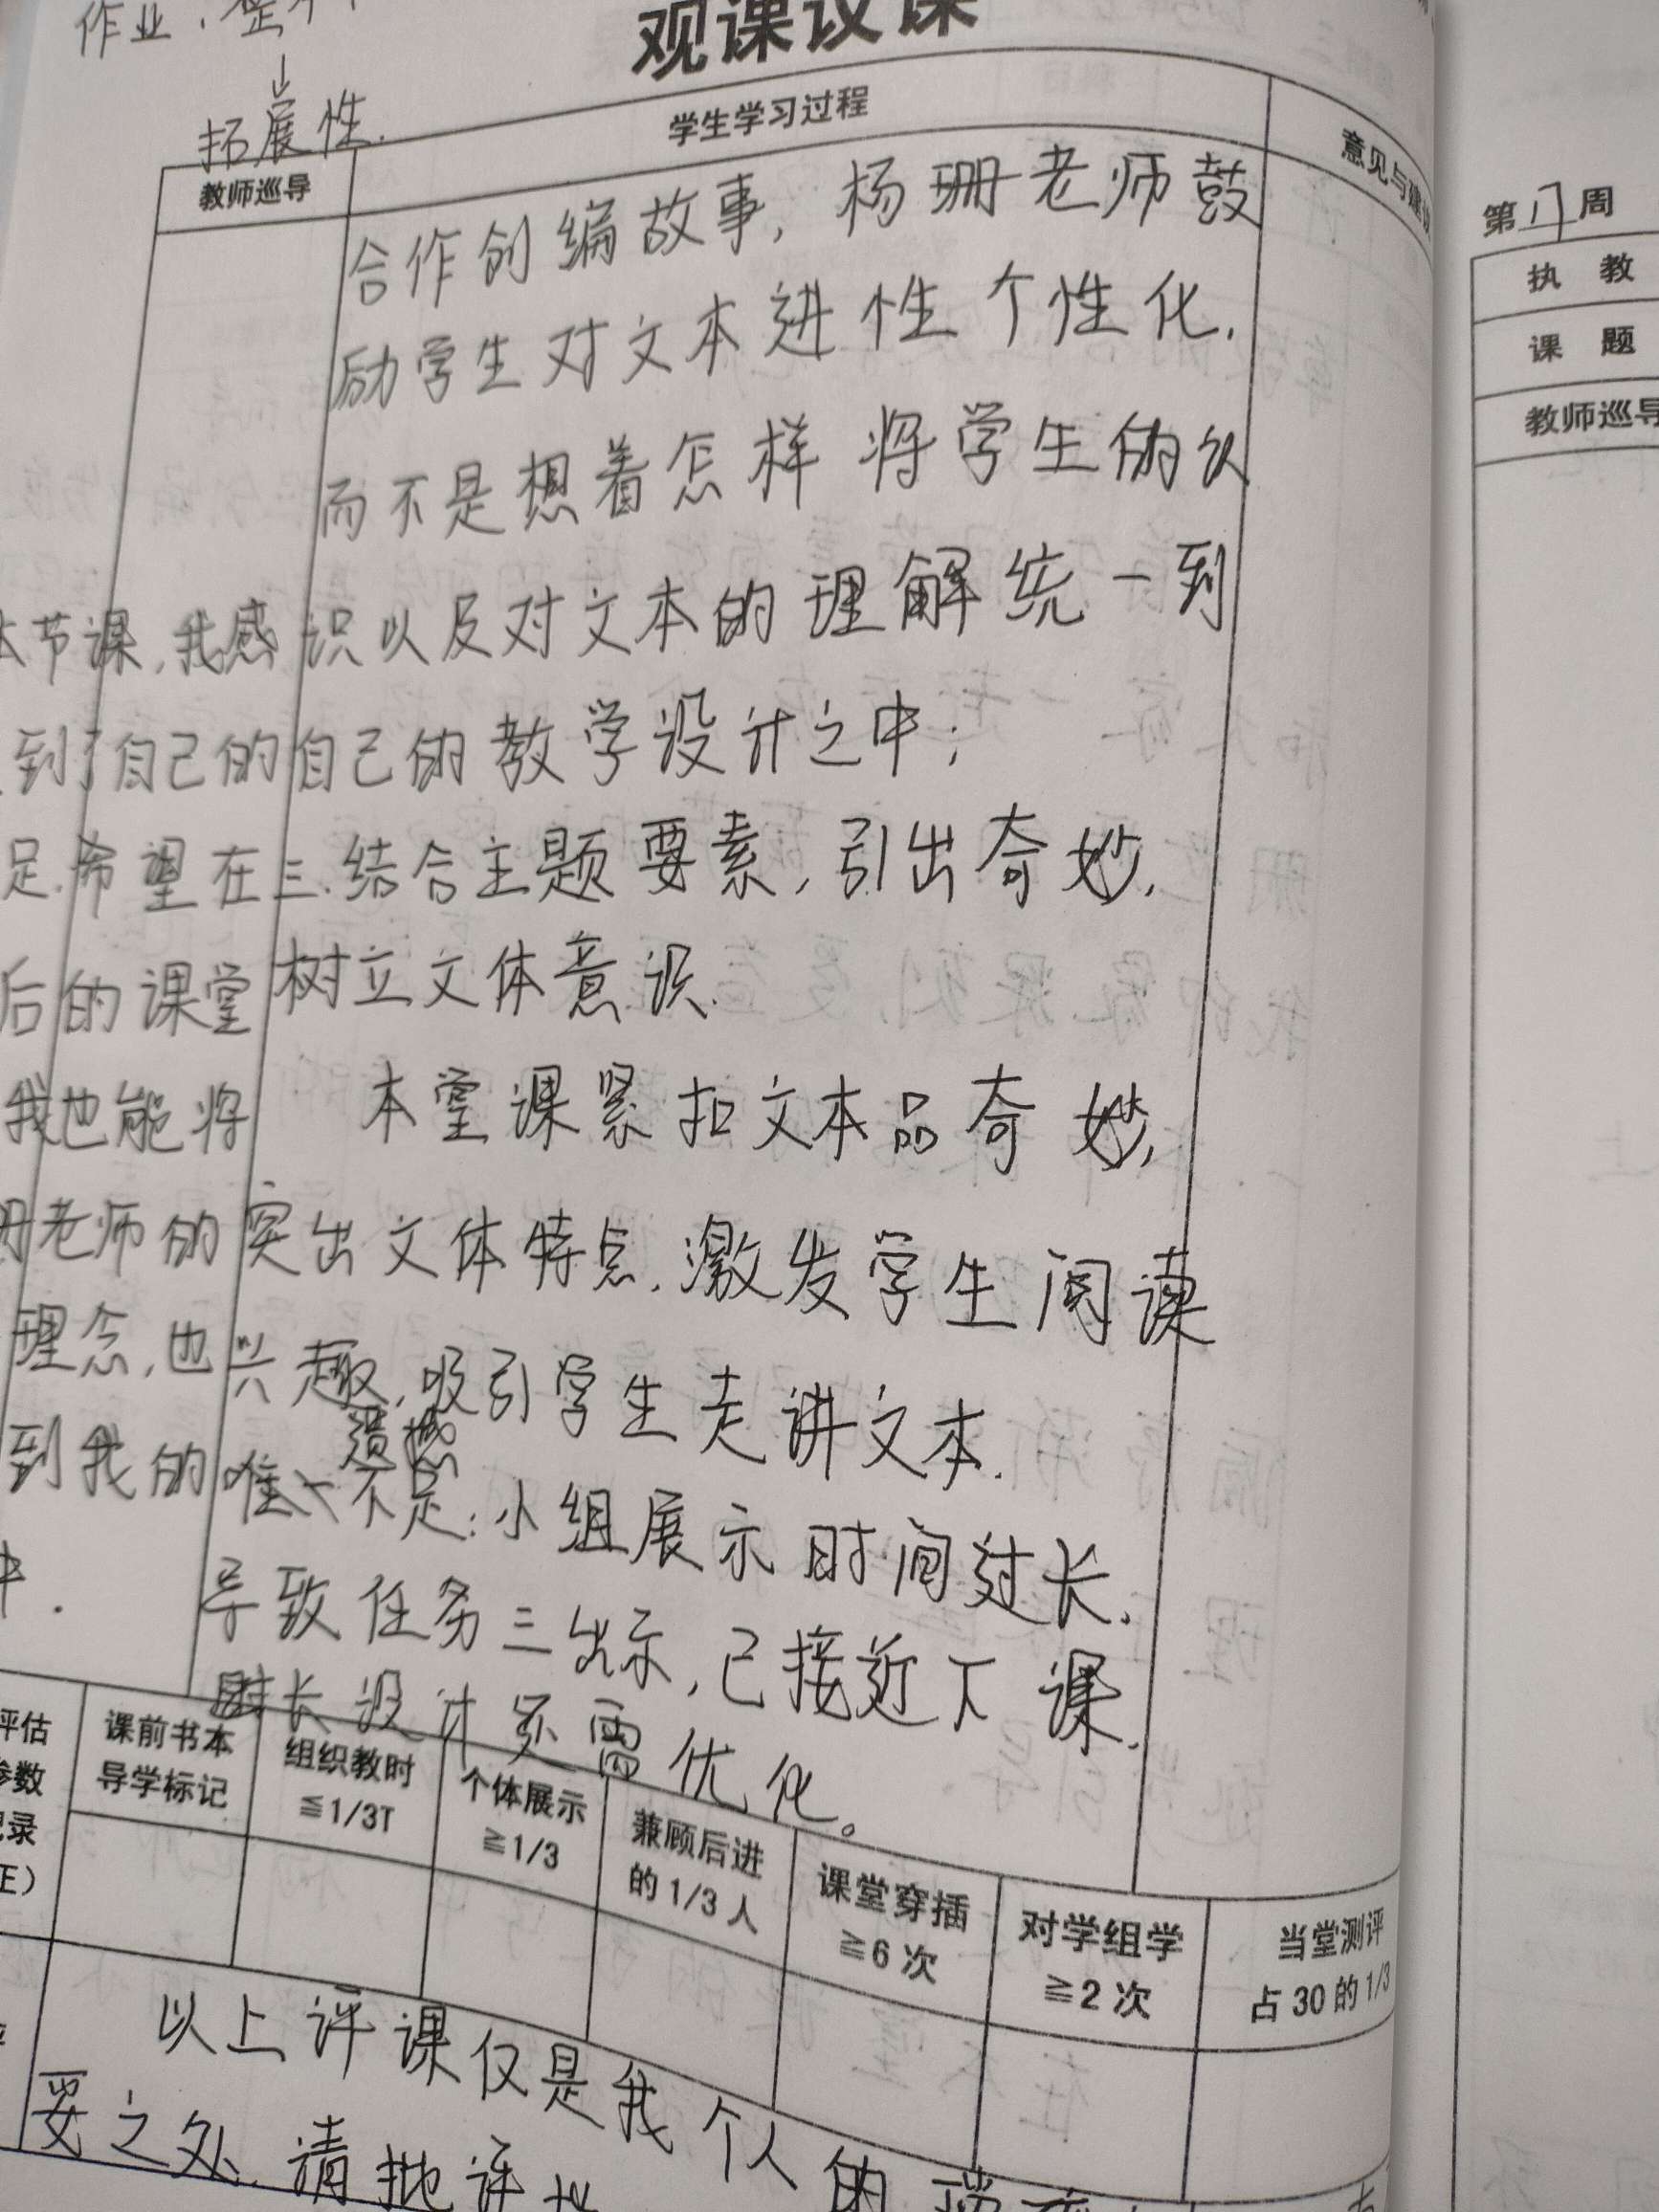 作业：整本
↓
拓展性.
观课议课
学生学习过程
意见与建议
教师巡导
合作创编故事，杨珊老师鼓
励学生对文本进性个性化.
而不是想着怎样将学生的认
识以及对文本的理解统一到
自己的教学设计之中；
结合主题要素，引出奇妙，
树立文体意识.
本堂课紧扣文本品奇妙，
突出文体特点.激发学生阅读
兴趣，吸引学生走进文本.
遗憾
唯一不足：小组展示时间过长.
导致任务三出示，已接近下课.
时长设计还需优化。
本节课，我感
到了自己的
足.希望在三.
后的课堂
我也能将
老师的
理念，也
到我的
中.
评估
参数
记录
正）
课前书本
导学标记
组织教时
≦1/3T
个体展示
≧1/3
兼顾后进
的1/3人
课堂穿插
≧6次
对学组学
≧2次
当堂测评
占30的1/3
以上评课仅是我个人的
妥之处.请批评
第17周
执 教
课 题
教师巡导